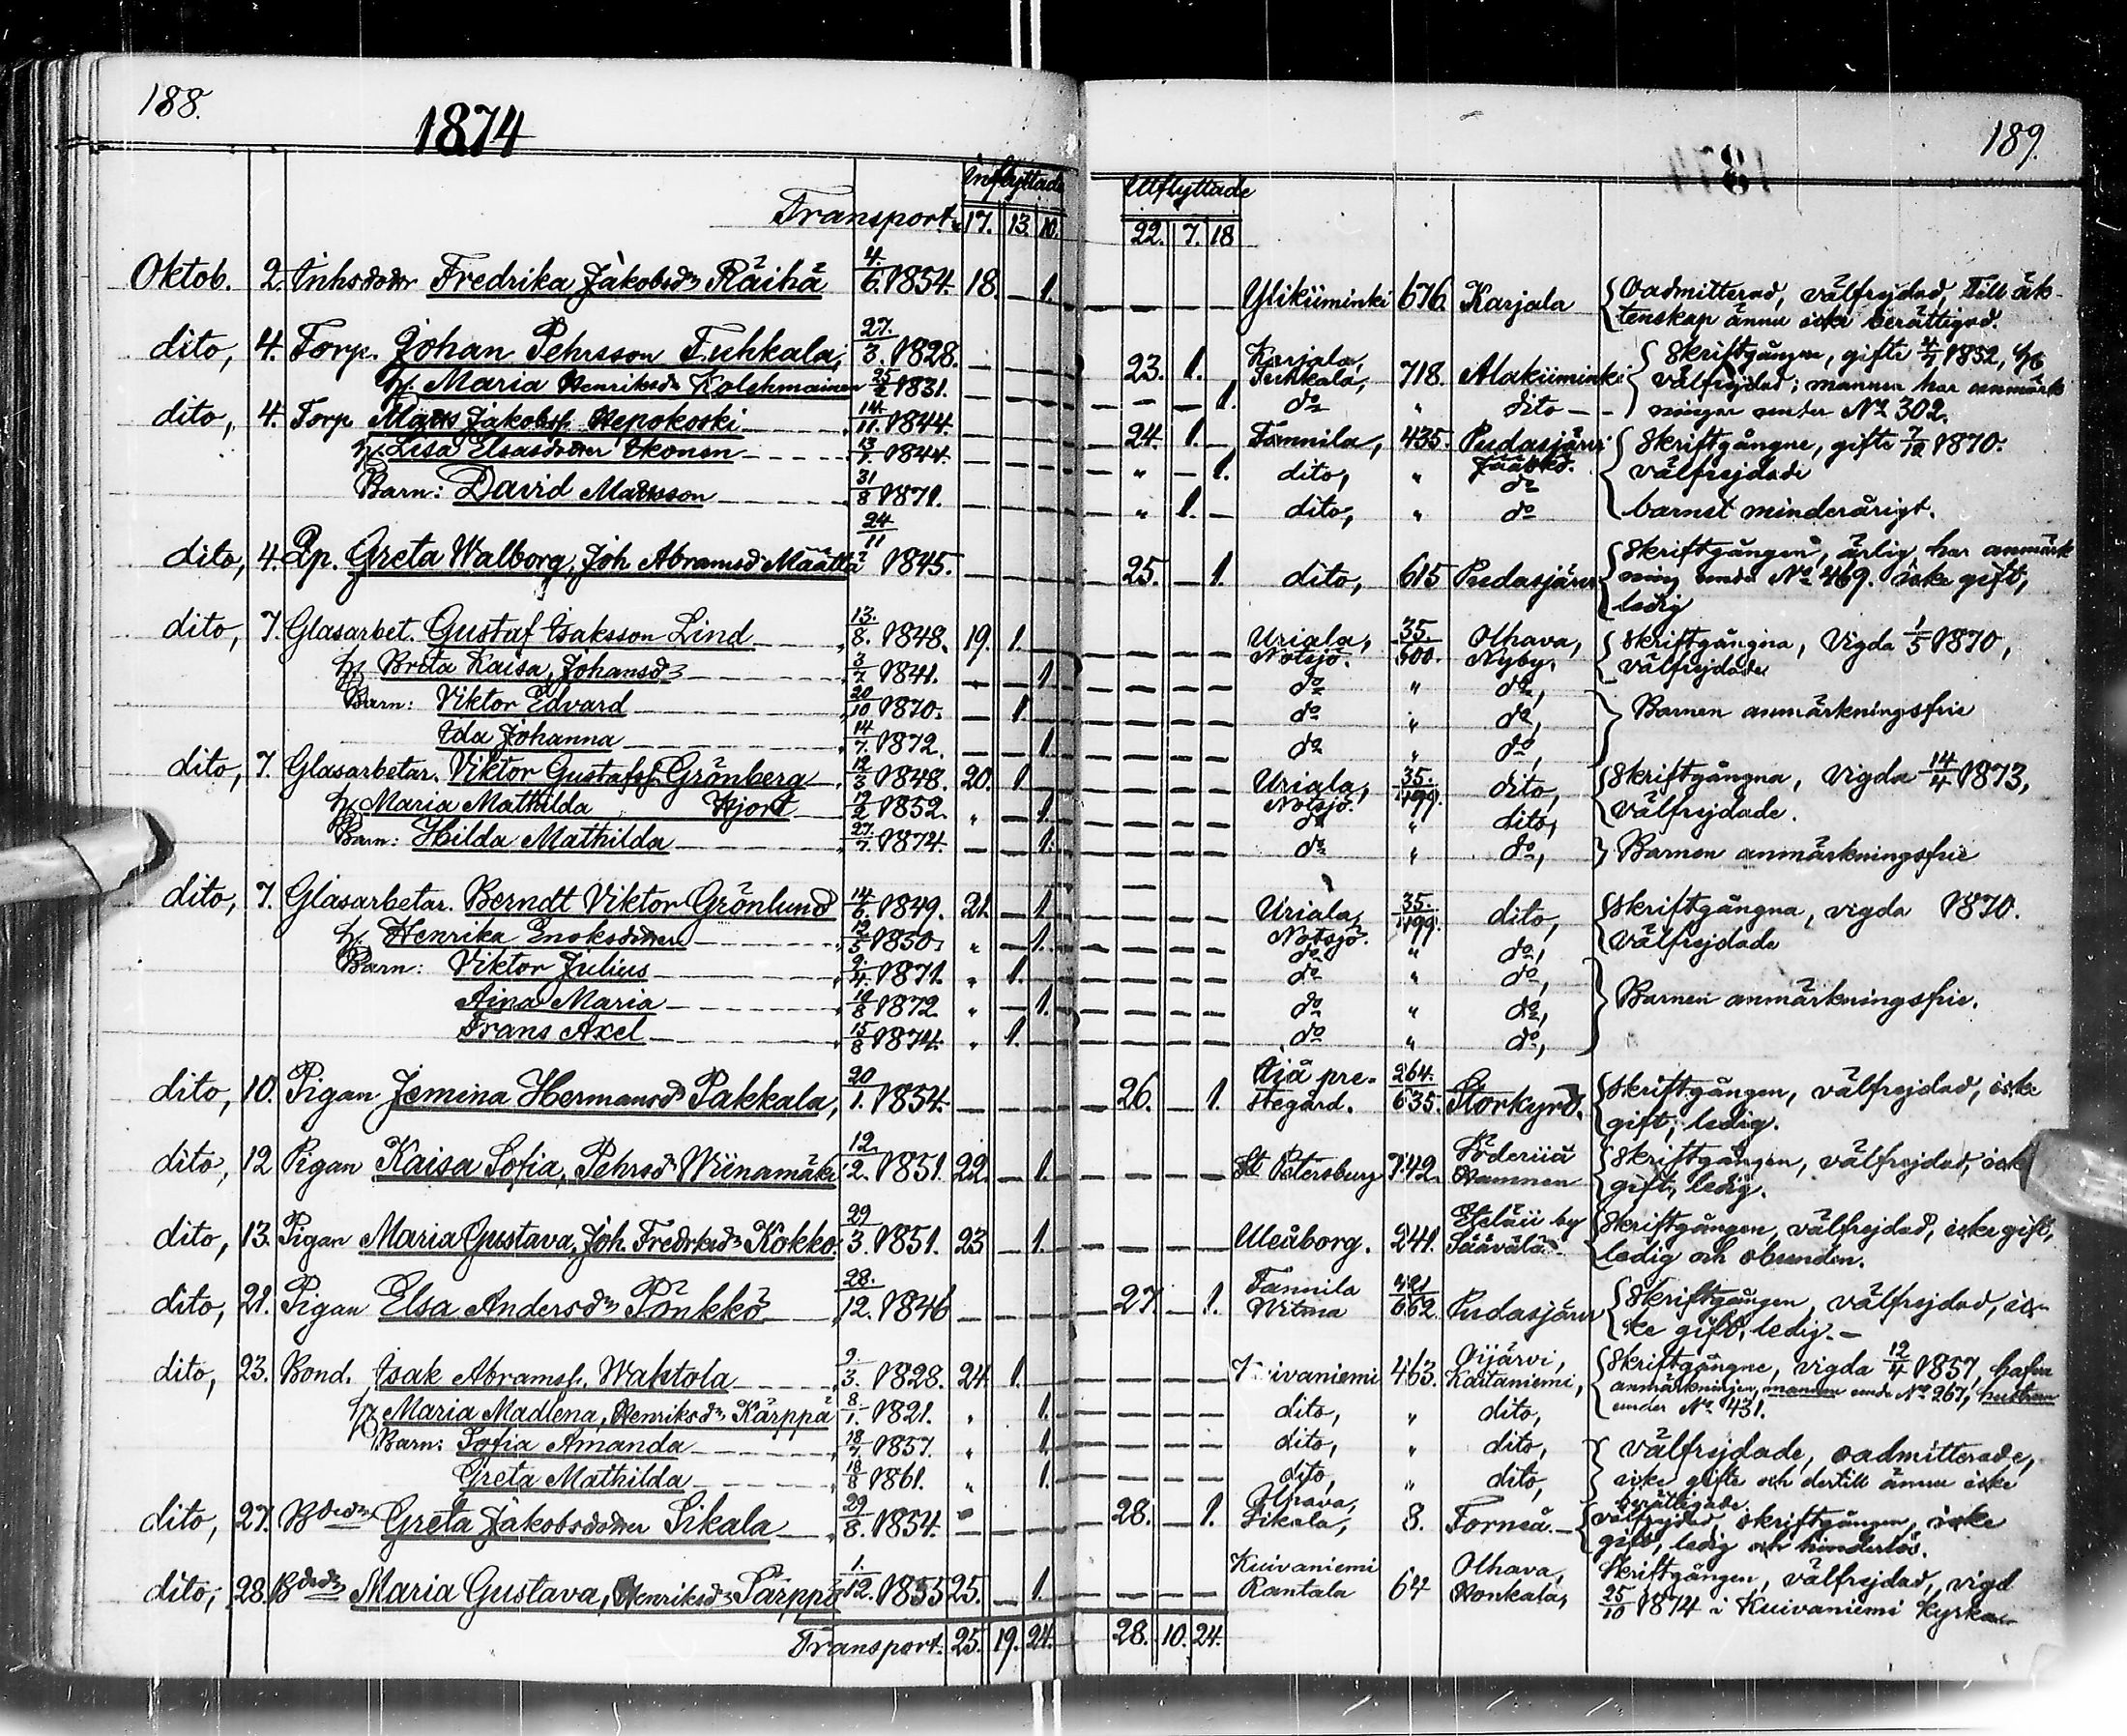 188.
1874
189.
Inflyttade
Utflyttade
Transport. 17. 13. 10. 22. 7. 18
Oktob. 2. Inhsdottr Fredrika Jakobsdr Räihä 4./6. 1854. 18. — 1. — — — Ylikiiminki 676. Karjala Oadmitterad, välfrejdad, Till äk-
tenskap ännu icke berättigad.
dito, 4. Torp. Johan Pehrsson Tuhkala, 27./3. 1828. — — — 23. 1. — Karjala, Tuhkala, 718. Alakiiminki Skriftgångne, gifte 4/7 1852,
h. Maria Henriksdr Kolehmainen 25/2 1831. — — — — — 1. do " dito — välfrejdad; mannen har anmärk
ningar under No 302.
dito, 4. Torp Matts Jakobss. Hepokoski 14./11. 1844. — — — 24. 1. — Tannila, 435. Pudasjärvi Skriftgångne, gifte 7/12 1870.
h. Lisa Eliasdotter Ikonen 13/7 1844. — — — " — 1. dito, " do välfrejdade
Barn: David Mattsson 31/8 1871. — — — " 1. — dito, " do barnet minderårigt.
dito, 4. Pp. Greta Walborg, Joh Abramsd Määttä 24/11 1845. — — — 25. — 1. dito, 615 Pudasjärvi Skriftgången, ärlig, har anmärk
ning under No 469. icke gift,
ledig
dito, 7. Glasarbet. Gustaf Isaksson Lind 13./8. 1848. 19. 1. — — — Urjala, Notsjö. 35./500. Olhava, Nyby. Skriftgångna, Vigda 1/5 1870,
välfrejdade
h. Brita Kaisa, Johansdr 3/7 1841. — — 1 — — — do " do,
Barn: Viktor Edvard 20/10 1870. — 1. — — — do " do, Barnen anmärkningsfrie
Ida Johanna 14/7. 1872. — — 1. — — — do " do,
dito, 7. Glasarbetar. Viktor Gustafss. Grönberg 12/3 1848. 20. 1 — — — Urjala, Notsjö. 35./499. dito, Skriftgångna, Vigda 14/4 1873,
h. Maria Mathilda Hjort 19/2 1852. " — 1. — — — do " dito, Välfrejdade.
Barn: Hilda Mathilda 27./7. 1874. — — 1. — — — do " do, Barnen anmärkningsfrie
dito, 7. Glasarbetar. Berndt Viktor Grönlund 14/6. 1849. 21. — 1 — — — Urjala, Notsjö. 35./499. dito, Skriftgångna, vigda 1870.
h. Henrika Enoksdotter 12/5 1850. " — 1. — — — do " do, Välfrejdade
Barn: Viktor Julius 9./4. 1871. " 1. — — — do " do,
Aina Maria 19/8 1872. " — 1. — — — do " do, Barnen anmärkningsfrie.
Frans Axel 15/8 1874. " 1. — — — do " do,
dito, 10. Pigan Jemina Hermansdr Pakkala, 20/1. 1854. — — — 26. — 1. Ijä pre-
stegård. 264./635. Storkyrö. Skriftgången, välfrejdad, icke
gift; ledig.
dito, 12 Pigan Kaisa Sofia, Pehrsdr Wiinamäki 12./12. 1851. 22. — 1. — — — St Petersburg 742. Hamnen Skriftgången, välfrejdad, icke
gift, ledig.
dito, 13. Pigan Maria Gustava, Joh. Fredrksdr Kokko. 29/3. 1851. 23 — 1. — — — Uleåborg. 241. by Skriftgången, välfrejdad, icke gift,
ledig och obunden.
dito, 21. Pigan Elsa Andersdr Pönkkö 28./12. 1846 — — — 27. — 1. Tannila 662. Pudasjärvi Skriftgången, välfrejdad, ic-
ke gift, ledig. —
dito, 23. Bond. Isak Abramss. Wahtola 9/3. 1828. 24. 1. — — — Kuivaniemi 463. Oijärvi, Kaitaniemi, Skriftgångne, vigda 12/4 1857, hafva
anmärkningen, mannen unde No 267, hustrun
under No 431.
h. Maria Madlena, Henriksdr Kärppä 8/1. 1821. " 1. — — — dito, " dito,
Barn: Sofia Amanda 18/7 1857. " 1. — — — dito, " dito, välfrejdade, oadmitterade,
Greta Mathilda 18/8 1861. " 1. — — — dito, " dito, icke gifte och dertill ännu icke
berättigade.
dito, 27. Bdedr Greta Jakobsdotter Sikala 29/8. 1854. — — — 28. — 1. Olhava, Sikala, 8. Torneå. — välfrejdad, skriftgången, icke
gift, ledig och hinderlös.
dito, 28. Bdedr Maria Gustava, Henriksdr Pärppä 1./12. 1855 25. — 1. — — — Kuivaniemi Rantala 64 Olhava, Honkala, Skriftgången, välfrejdad, vigd
25/10 1874 i Kuivaniemi kyrka
Transport. 25. 19. 24. 28. 10. 24.